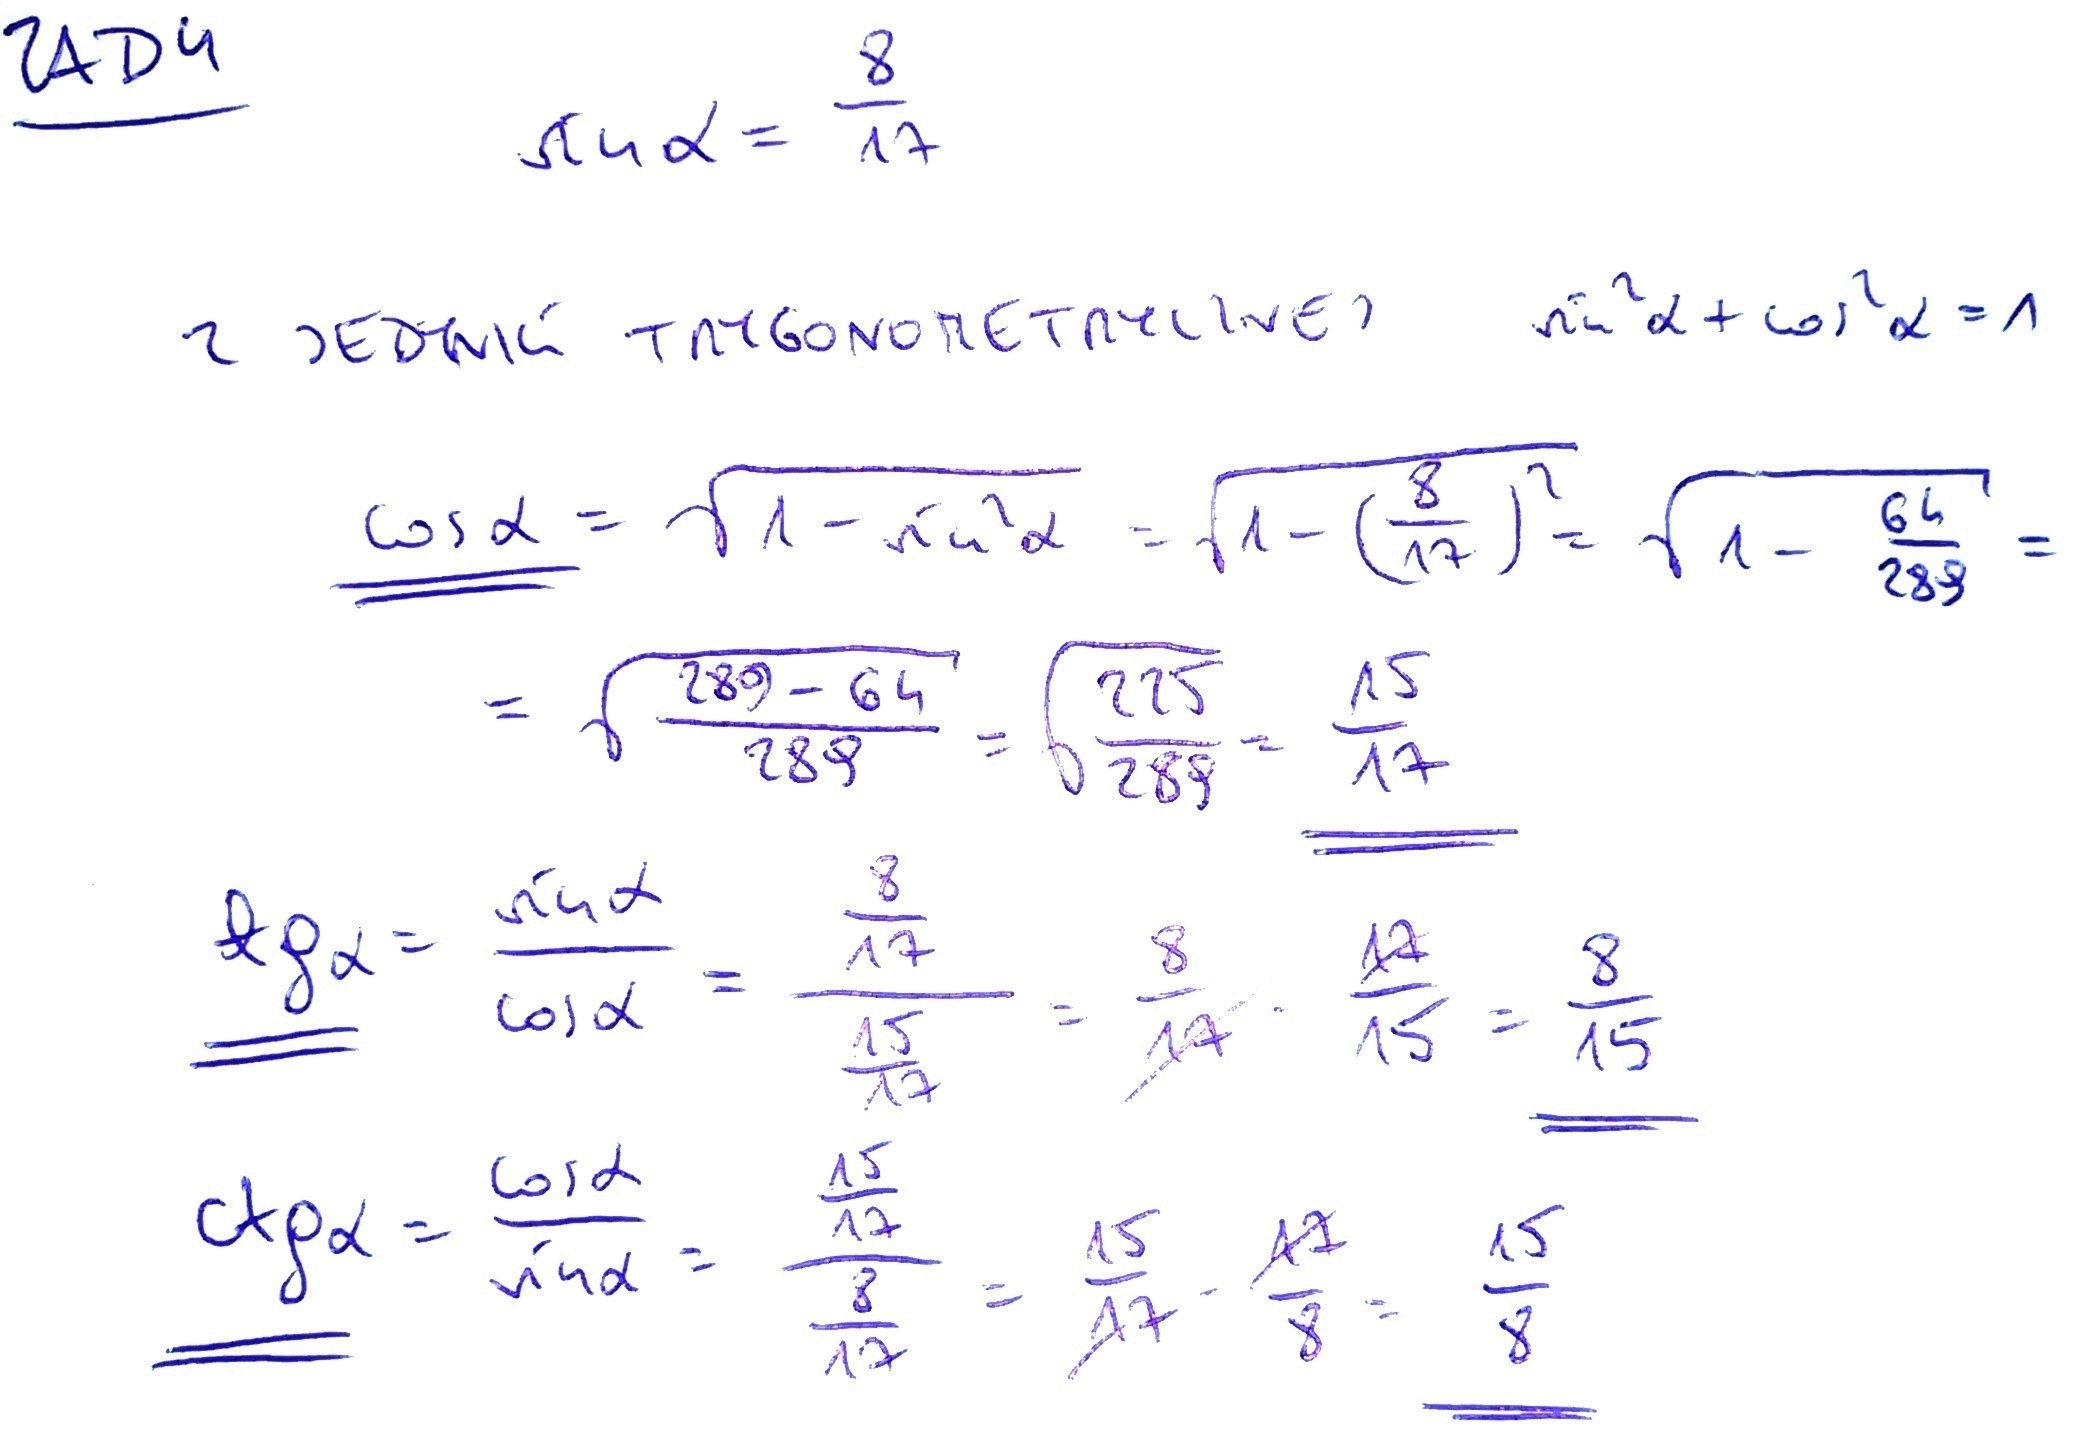 ZAD 4
sin α = 8/17
Z JEDYNKI TRYGONOMETRYCZNEJ sin²α + cos²α = 1
cos α = √(1 - sin²α) = √(1 - (8/17)²) = √(1 - 64/289) =
= √((289 - 64)/289) = √(225/289) = 15/17
tg α = sin α / cos α = (8/17)/(15/17) = 8/17 · 17/15 = 8/15
ctg α = cos α / sin α = (15/17)/(8/17) = 15/17 · 17/8 = 15/8